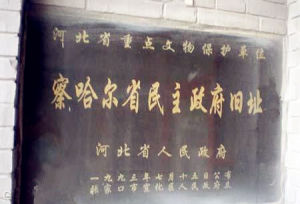 河北省重点文物保护单位
察哈尔省民主政府旧址
河北省人民政府
一九九三年七月十五日公布
张家口市宣化区人民政府立